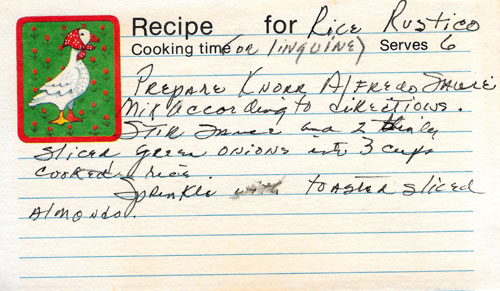 Recipe for Rice Rustico
Cooking time (or linguine) Serves 6
Prepare Knorr Alfredo Sauce
Mix according to directions.
Stir sauce and 2 thinly
sliced green onions into 3 cups
cooked rice.
Sprinkle with toasted sliced
almonds.